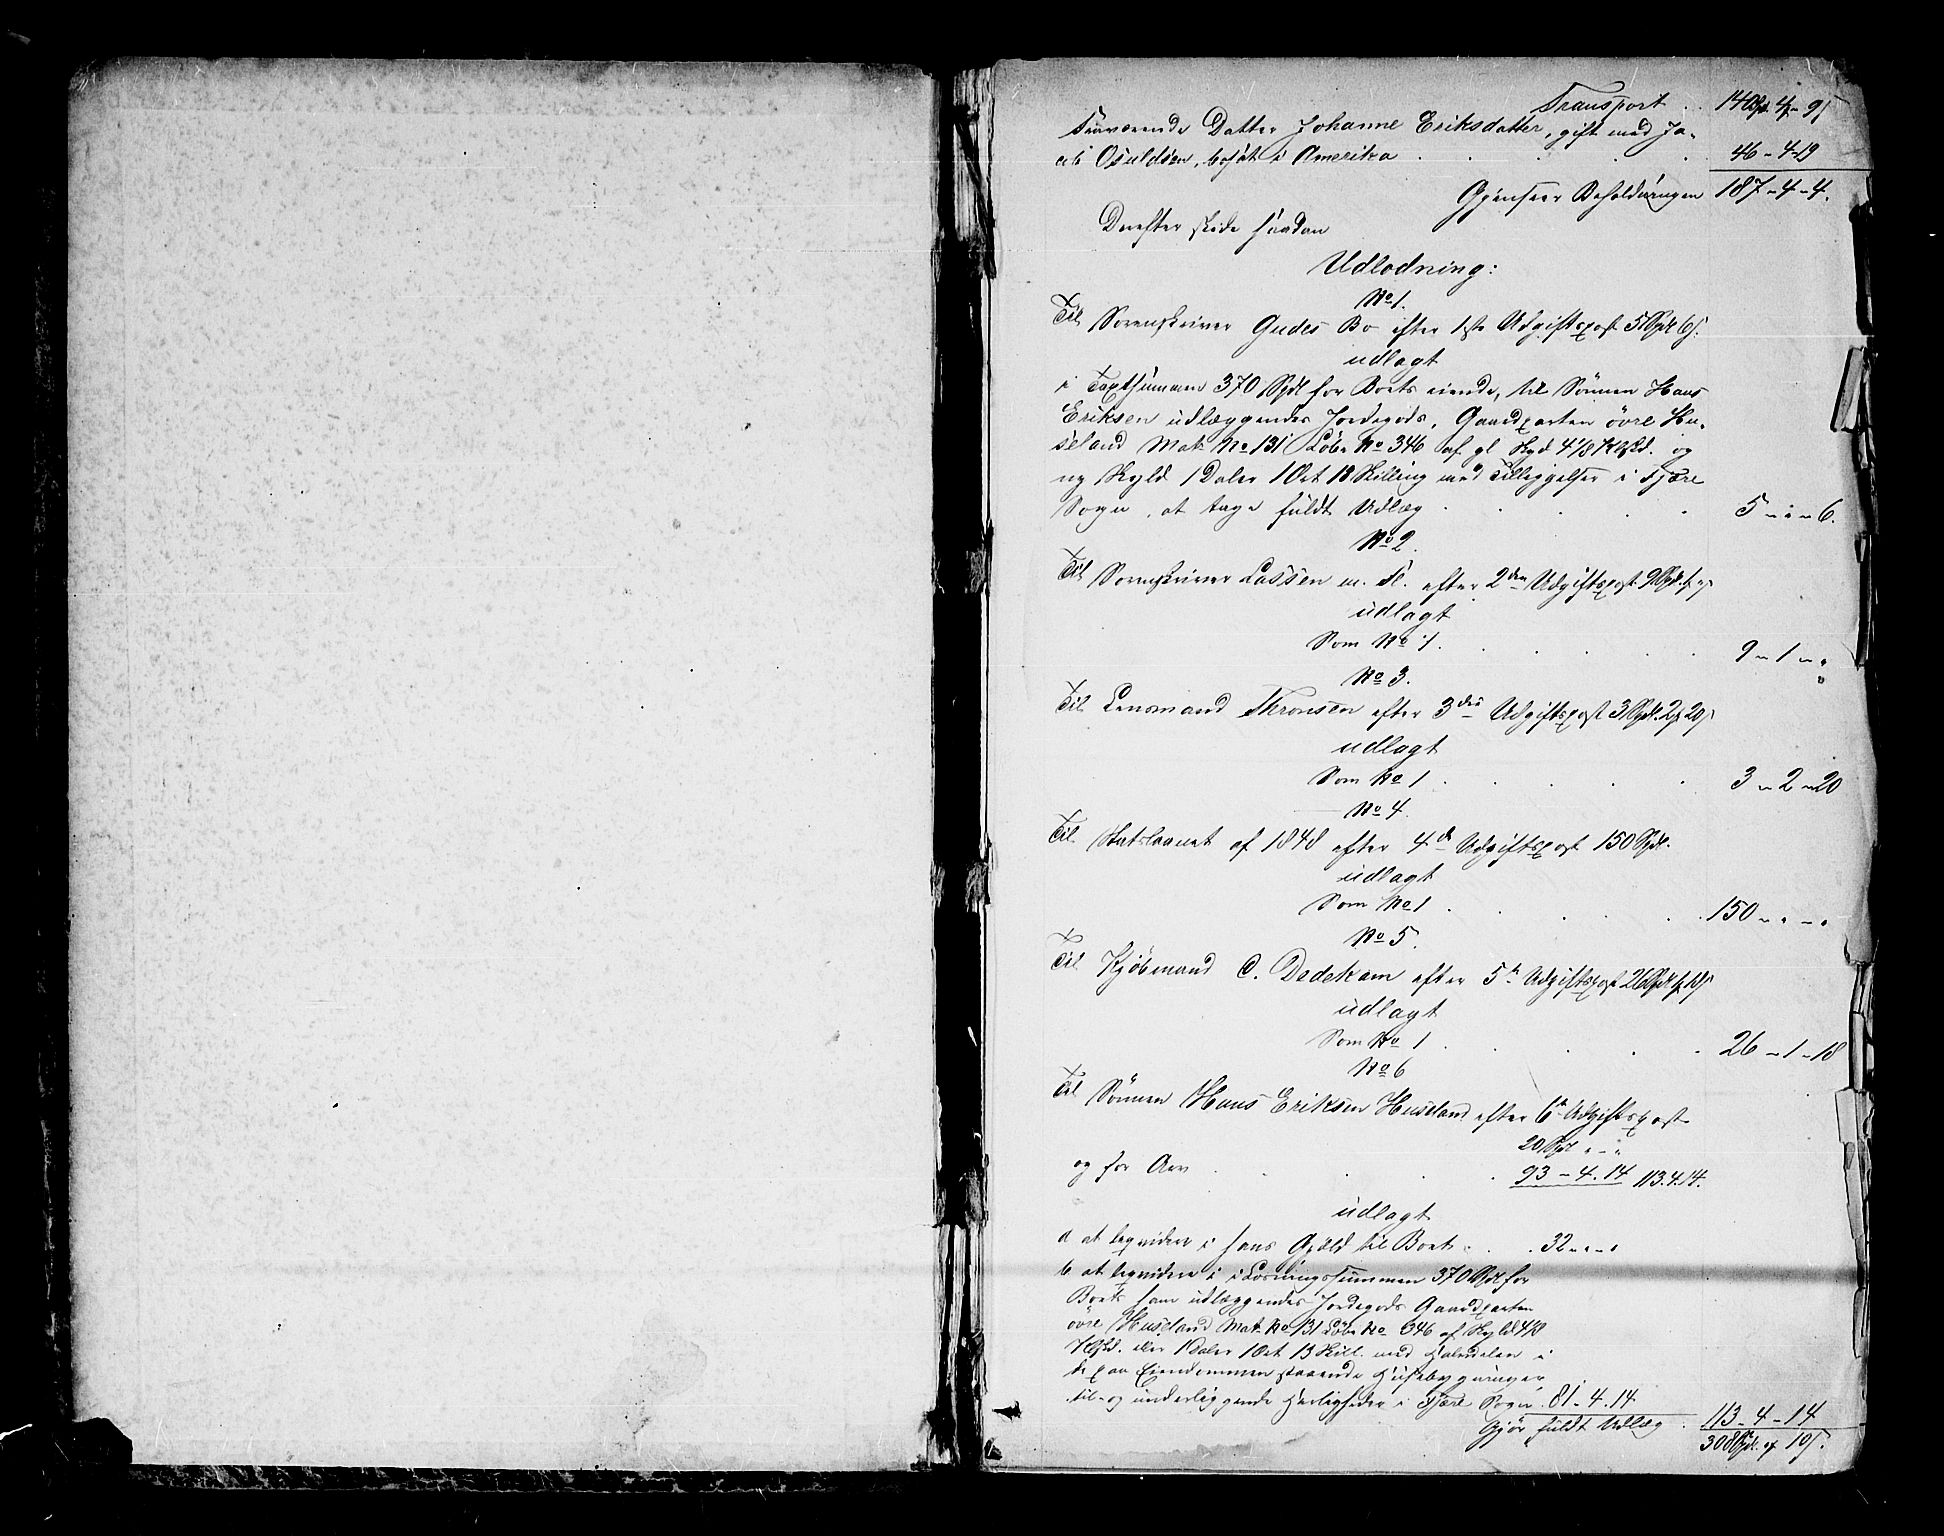 Transport . . 140 Spd 4 - 9 s
Fraværende Datter Johanne Eriksdatter, gift med Ja-
cob Osuldsen, bosat i Amerika . . . . . 46 - 4 - 19
Gjenseer Beholdningen 187 - 4 - 4.
Derefter skede saadan
Udlodning:
No 1.
Til Sorenskriver Gudes Bo efter 1ste Udgiftspost 5 Spd 6 s.
udlagt
i Taxtsummen 370 Spd for Boets eiende, til Sönnen Hans
Eriksen udlæggendes Jordegods, Gaardparten övre Hu-
seland Mat: No 131 Löbe No 346 af gl Skyld 4 1/8 Kalvskd. og
ny Skyld 1 Daler 1 Ort 18 Skilling med Tilliggelser i Fjære
Sogn, at tage fuldt Udlæg . . . . . 5 - " - 6.
No 2.
Til Sorenskriver Lassen m. Fl. efter 2den Udgiftspost 9 Spd. 1 -
udlagt
Som No 1. . . . . . 9 - 1 - "
No 3.
Til Lensmand Thronsen efter 3die Udgiftspost 3 Spd. 2 20 s
udlagt
Som No 1 . . . . . 3 - 2 - 20
No 4.
Til Statslaanet af 1848 efter 4de Udgiftspost 150 Spd.
udlagt
Som No 1 . . . . . 150 - " - "
No 5.
Til Kjöbmand C. Dedekam efter 5te Udgiftspost 26 Spd 1 18 s
udlagt
Som No 1 . . . . . 26 - 1 - 18
No 6
Til Sönnen Hans Eriksen Huseland efter 6te Udgiftspost
20 Spd " - "
og for Arv . . . 93 - 4. 14 113. 4. 14.
udlagt
a at liqvidere i hans Gjæld til Boet . . . 32 - " - "
b at liqvidere i Lösningssummen 370 Spd for
Boets ham udlæggendes Jordegods Gaardparten
övre Huseland Mat: No 131 Löbe No 346 af Skyld 4 1/8
Kalvskd. eller 1 Daler 1 Ort 18 Skill. med Halvdelen i
de paa Eiendommen staaende Huusebygninger,
til- og underliggende Herligheder i Fjære Sogn . 81 - 4. 14
Gjör fuldt Udlæg . 113 - 4 - 14
308 Spd. 10 s.